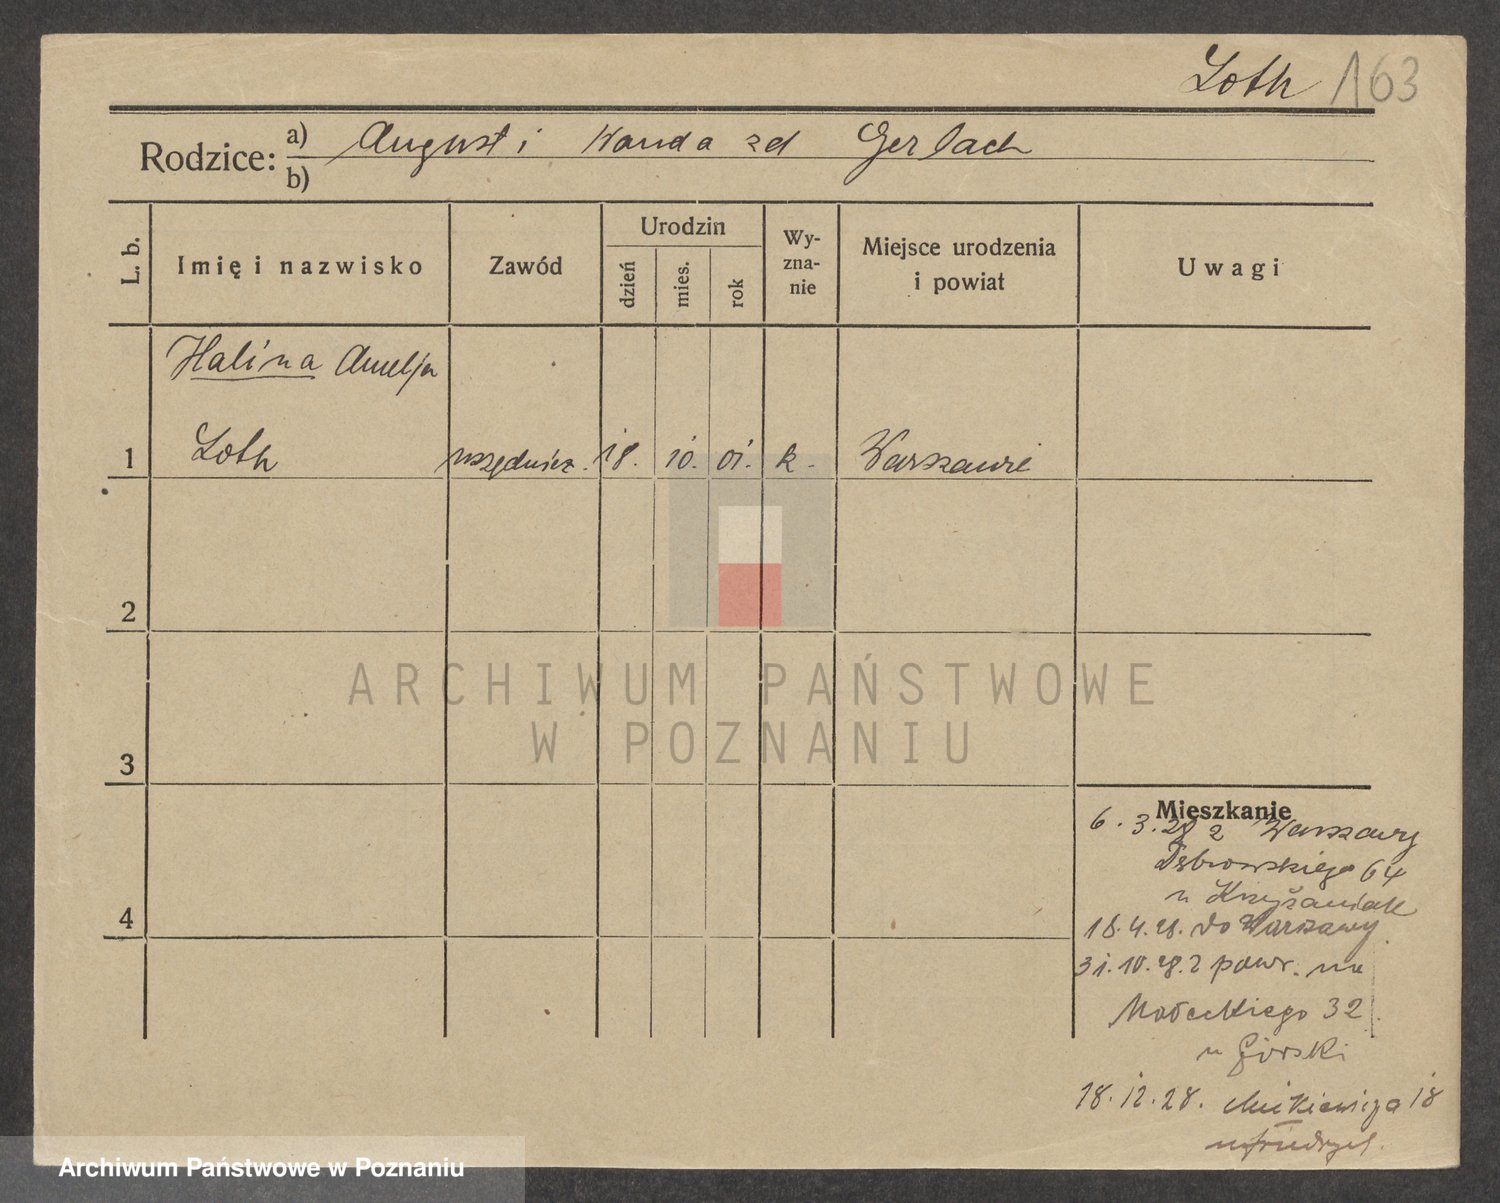 Loth 163
Rodzice: a) August i Wanda zd Gerlach
b)
L. b.
Imię i nazwisko
Zawód
Urodzin
dzień
mies.
rok
Wy-
zna-
nie
Miejsce urodzenia
i powiat
Uwagi
Halina Amelja
1 Loth urzędnicz. 18. 10. 01. k. Warszawie
2
3
4
ARCHIWUM PAŃSTWOWE
W POZNANIU
Mieszkanie
6. 3. 28 z Warszawy
Dąbrowskiego 64
u Krzyżaniak
18. 4. 28. do Warszawy
31. 10. 28. z powr. na
Małeckiego 32
u Górski
18. 12. 28. Mickiewicza 18
Archiwum Państwowe w Poznaniu